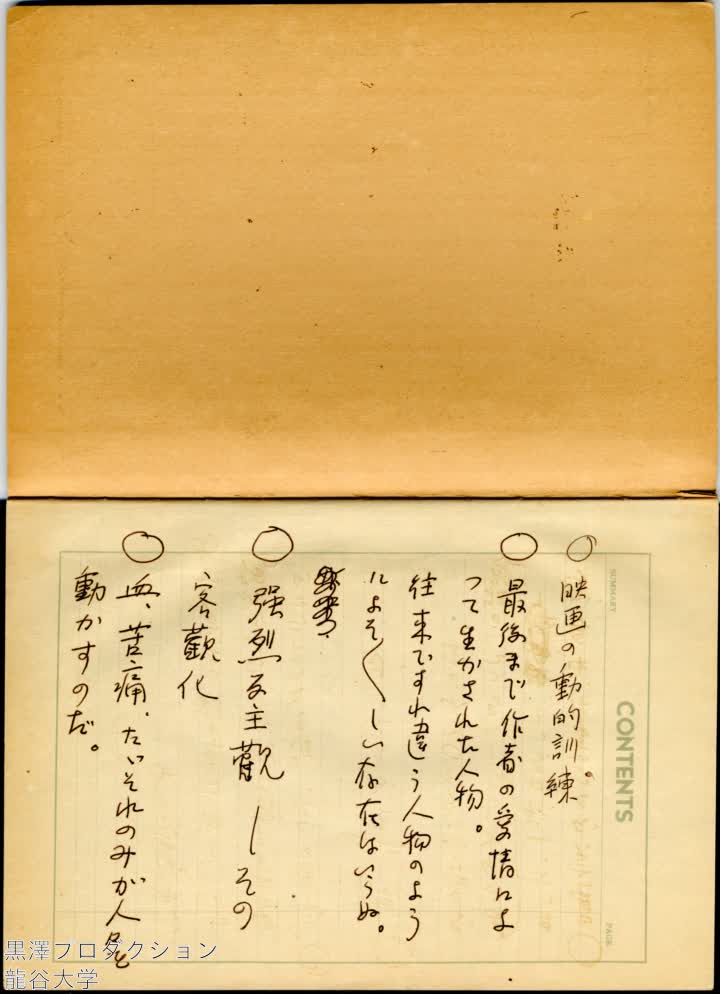 ○ 映画の動的訓練。
○ 最後まで作者の愛情によ
って生かされた人物。
往来ですれ違う人物のよう
によそ〱しい存在はいらぬ。
○ 強烈な主觀 ― その
客觀化
○ 血、苦痛、たゞそれのみが人を
動かすのだ。
SUMMARY
CONTENTS
PAGE
黒澤プロダクション
龍谷大学